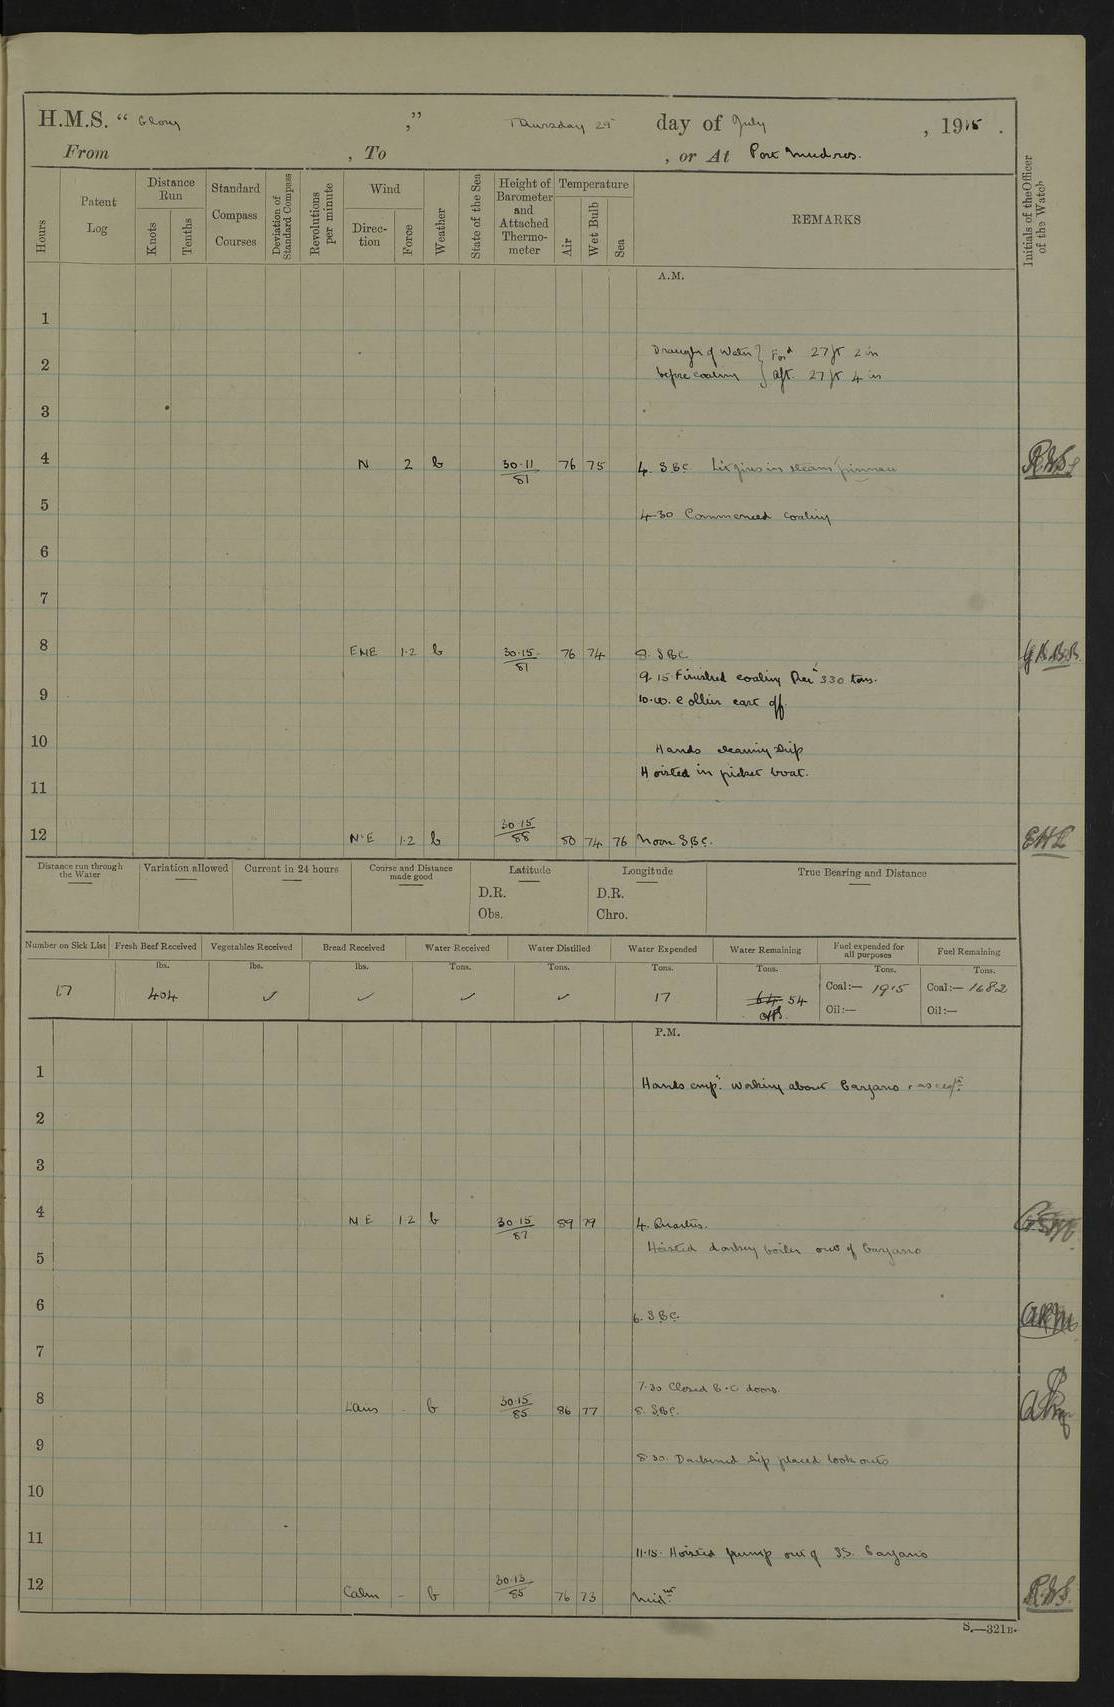 H.M.S. “ Glory ,” Thursday 29th day of July , 1915 .
From , To , or At Port Mudros.
Hours
Patent Log
Distance Run
Knots
Tenths
Standard Compass Courses
Deviation of Standard Compass
Revolutions per minute
Wind
Direction
Force
Weather
State of the Sea
Height of Barometer and Attached Thermometer
Temperature
Air
Wet Bulb
Sea
REMARKS
Initials of the Officer of the Watch
A.M.
1
Draught of Water } Ford 27 ft 2 in
2
before coaling } Aft. 27 ft 4 in
3
4 N 2 b 30·11/81 76 75 4. S.B.C. Lit fires in steam pinnace
5
4-30 Commenced coaling
6
7
8 ENE 1·2 b 30·15/81 76 74 8. S.B.C.
9.15 Finished coaling Recd 330 tons.
9
10.10. Collier cast off.
10
Hands cleaning ship
Hoisted in picket boat.
11
12 N'E 1·2 b 30·15/88 80 74 76 Noon S.B.C. EHL
Distance run through the Water
Variation allowed
Current in 24 hours
Course and Distance made good
Latitude
Longitude
True Bearing and Distance
D.R. D.R.
Obs. Chro.
Number on Sick List
Fresh Beef Received
Vegetables Received
Bread Received
Water Received
Water Distilled
Water Expended
Water Remaining
Fuel expended for all purposes
Fuel Remaining
lbs. lbs. lbs. Tons. Tons. Tons. Tons. Tons. Tons.
17 404 ✓ ✓ ✓ ✓ 17 64 54 Coal:— 19·5 Coal:— 1682
Oil:— Oil:—
P.M.
1
Hands empd. working about Caryano
2
3
4 NE 1·2 b 30 15/87 89 79 4. Quarters.
Hoisted donkey boiler out of Caryano
5
6
6. S.B.C.
7
7·30 Closed B.C doors.
8 Lairs - b 30·15/85 86 77 8. S.B.C.
9
8·30. Darkened ship placed look outs
10
11
11·15. Hoisted pump out of S.S. Caryano
12 Calm - b 30·13/85 76 73 Midnt R.W.S.
S.—321B.